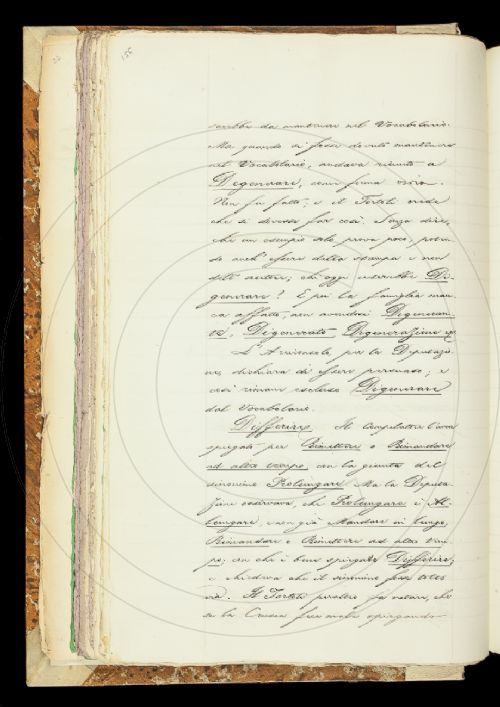 155
sarebbe da mantenere nel Vocabolario.
Ma quando si fosse dovuto mantenere
nel Vocabolario, andava riunito a
Degenerare, come prima
Non fu fatto; e il Tortoli crede
che si dovesse far così. Senza dire,
che un esempio solo prova poco, poten-
do anch'essere della stampa e non
dello scrittore; chi oggi userebbe De-
generare? E poi la famiglia man-
ca affatto, non avendosi Degeneran-
te, Degenerato Degenerazione
L'Arciconsolo, per la Deputazio-
ne, dichiara di essere persuaso; e
così rimane escluso Degenerare
dal Vocabolario.
Differire. Il Compilatore l'aveva
spiegato per Rimettere o Rimandare
ad altro tempo, con la giunta del
sinonimo Prolungare. Ma la Deputa-
zione osservava, che Prolungare è Al-
lungare, e non già Mandare in lungo,
Rimandare o Rimettere ad altro tem-
po, con che è bene spiegato Differire;
e chiedeva che il sinonimo fosse tolto
via. Il Tortoli peraltro fa notare, che
se la Crusca fece male spiegando